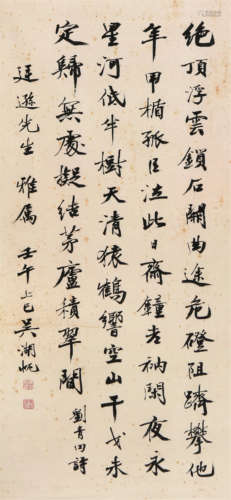 絕頂浮雲鎖石關曲途危磴阻躋攀他
年甲楯孤臣泣此日齋鐘老衲閑夜永
星河低半樹天清猿鶴響空山干戈未
定歸無處擬結茅廬積翠間 劉青田詩
廷遜先生 雅屬 壬午上巳吳湖帆